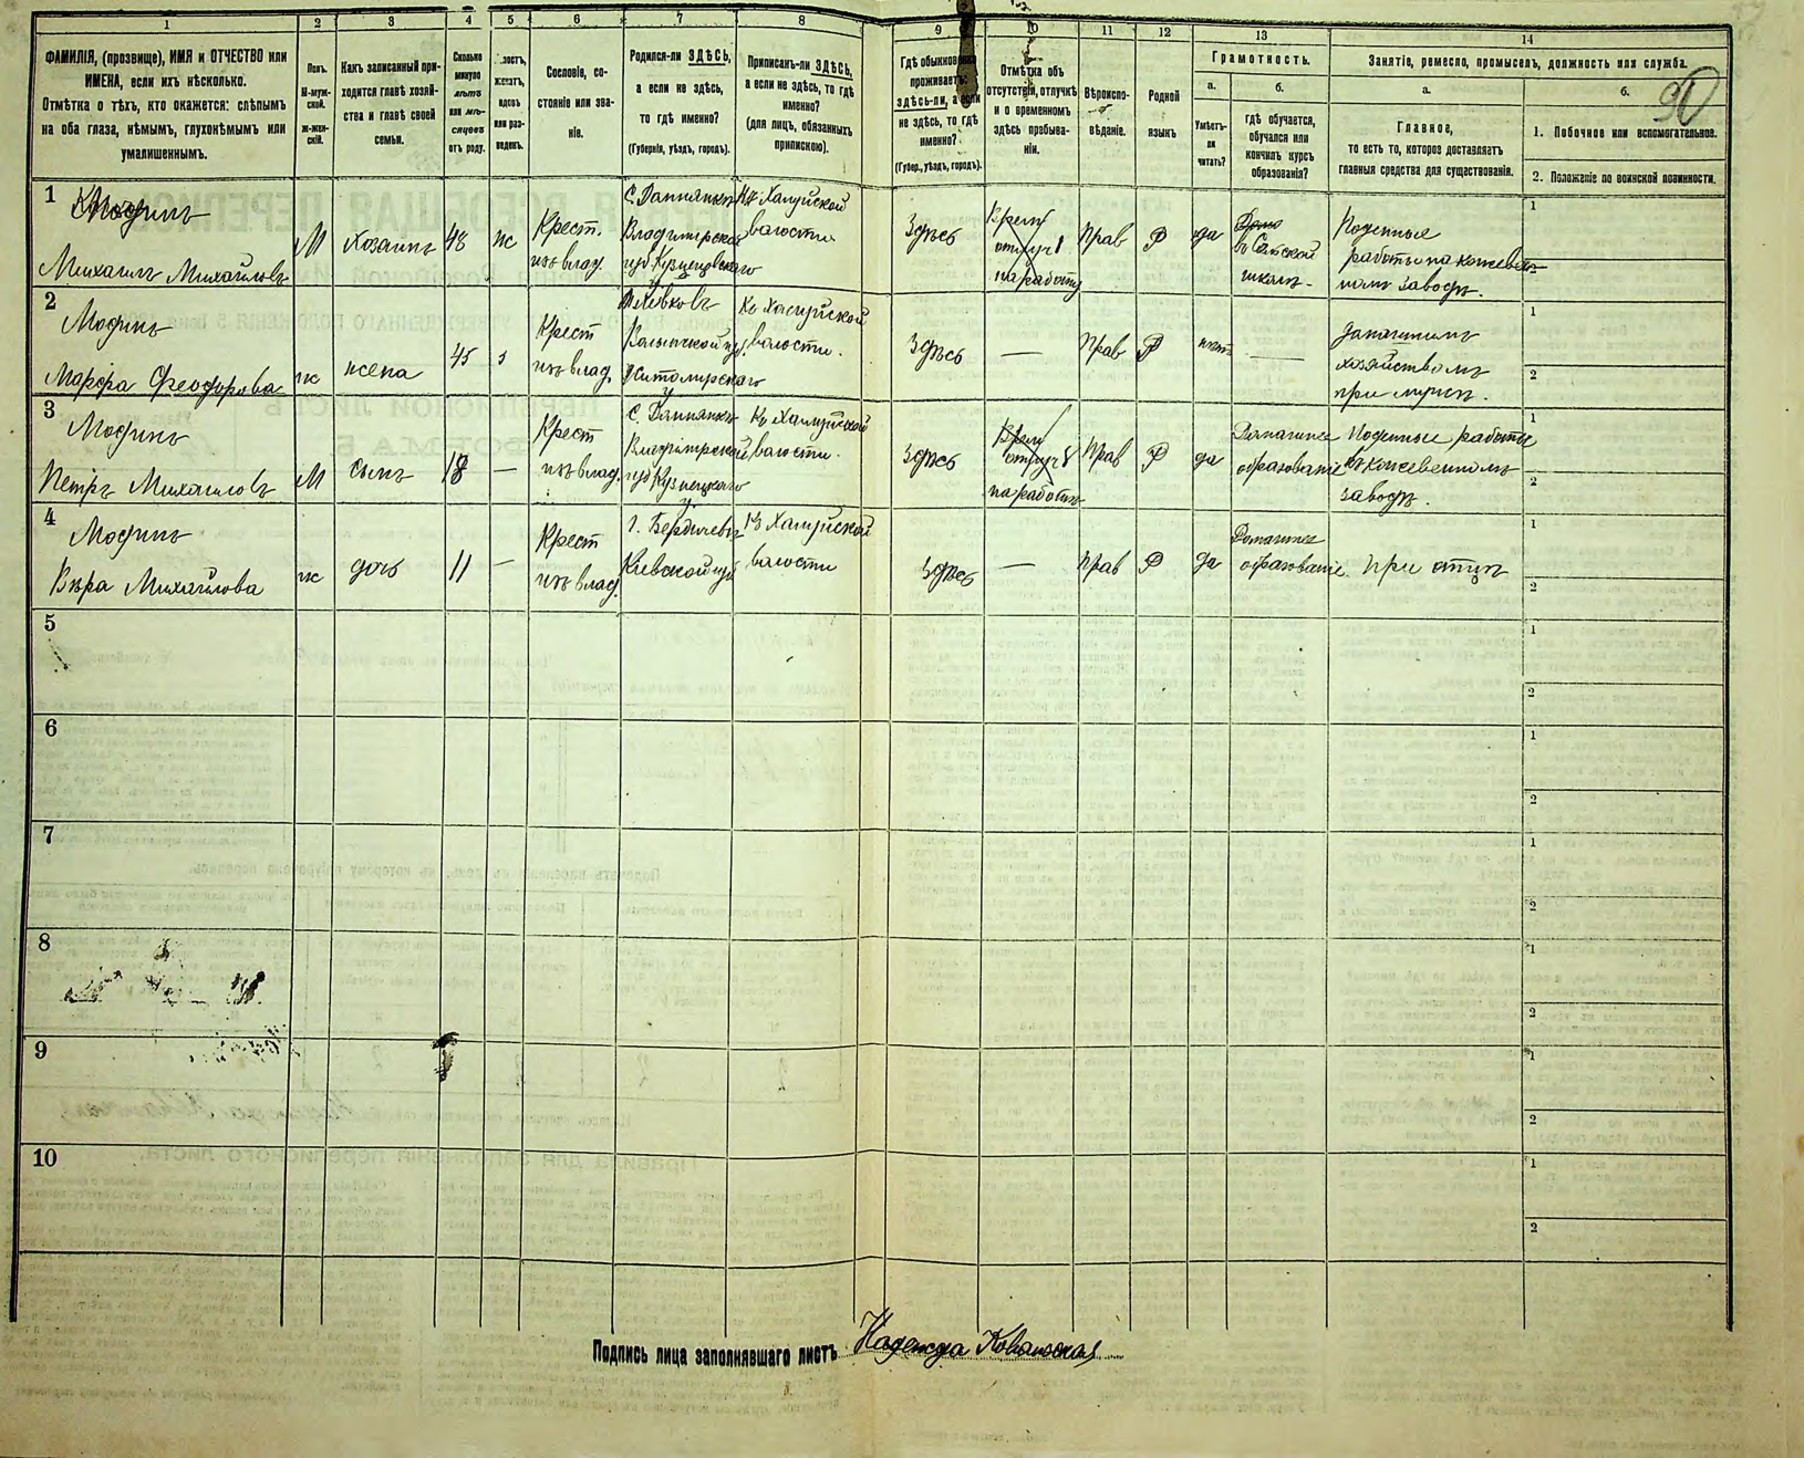 1 2 3 4 5 6 7 8 9 10 11 12 13 14
ФАМИЛІЯ, (прозвище), ИМЯ и ОТЧЕСТВО или
ИМЕНА, если ихъ нѣсколько.
Отмѣтка о тѣхъ, кто окажется: слѣпымъ
на оба глаза, нѣмымъ, глухонѣмымъ или
умалишеннымъ.
Полъ.
М-муж-
ской.
Ж-жен-
скій.
Какъ записанный при-
ходится главѣ хозяй-
ства и главѣ своей
семьи.
Сколько
минуло
лѣтъ
или мѣ-
сяцевъ
отъ роду.
женатъ,
вдовъ
или раз-
веденъ.
Сословіе, со-
стояніе или зва-
ніе.
Родился-ли ЗДѢСЬ,
а если не здѣсь,
то гдѣ именно?
(Губернія, уѣздъ, городъ).
Приписанъ-ли ЗДѢСЬ,
а если не здѣсь, то гдѣ
именно?
(для лицъ, обязанныхъ
припискою).
Гдѣ обыкновенно
проживаетъ:
здѣсь-ли, а если
не здѣсь, то гдѣ
именно?
(Губер., уѣздъ, городъ).
Отмѣтка объ
отсутствіи, отлучкѣ
и о временномъ
здѣсь пребыва-
ніи.
Вѣроиспо-
вѣданіе.
Родной
языкъ.
Грамотность.
а.
Умѣетъ-
ли
читать?
б.
гдѣ обучается,
обучался или
кончилъ курсъ
образованія?
Занятіе, ремесло, промыселъ, должность или служба.
а.
Главное,
то есть то, которое доставляетъ
главныя средства для существованія.
б.
1. Побочное или вспомогательное.
2. Положеніе по воинской повинности.
90
1
Модинъ
Михаилъ Михайловъ
М
хозяинъ
48
ж
Крест.
изъ влад.
Владимірской
Халуйской
волости
Здѣсь
на работу
Прав
Р
да
въ Сельской
школѣ
Поденные
заводѣ.
1
2
Модинъ
Марфа Феодорова
ж
жена
45
з
Крест
изъ влад.
Волынской губ.
Житомирскаго
Халуйской
волости.
Здѣсь
—
Прав
Р
нѣтъ
—
домашнимъ
хозяйствомъ
при мужѣ.
1
2
3
Модинъ
Петръ Михаиловъ
М
сынъ
18
—
Крест
изъ влад.
Владимірской
Халуйской
волости.
Здѣсь
на работѣ
Прав
Р
да
Домашнее
образованіе
Поденные работы
въ кожевенномъ
заводѣ.
1
2
4
Модинъ
Вѣра Михайлова
ж
дочь
11
—
Крест
изъ влад.
г. Бердичевъ
Кіевской губ
Халуйской
волости
Здѣсь
—
Прав
Р
да
Домашнее
образованіе
при отцѣ
1
2
5
1
2
6
1
2
7
1
2
8
1
2
9
1
2
10
1
2
Подпись лица заполнявшаго листъ Надежда Ковальская